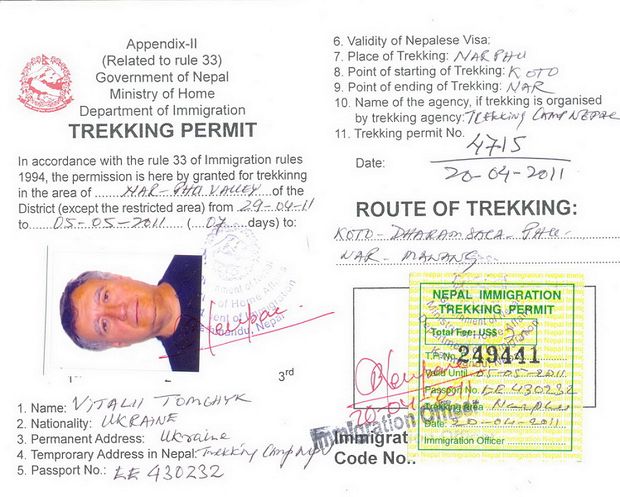 Appendix-II
(Related to rule 33)
Government of Nepal
Ministry of Home
Department of Immigration
TREKKING PERMIT
In accordance with the rule 33 of Immigration rules
1994, the permission is here by granted for trekkinng
in the area of NAR-PHU VALLEY of the
District (except the restricted area) from 29-04-11
to 05-05-2011 (07 days) to:
3rd
1. Name: VITALII TOMCHYK
2. Nationality: UKRAINE
3. Permanent Address: Ukraine
4. Temporary Address in Nepal: Trekking Camp Nepal
5. Passport No.: EE 430232
6. Validity of Nepalese Visa:
7. Place of Trekking: NARPHU
8. Point of starting of Trekking: KOTO
9. Point of ending of Trekking: NAR
10. Name of the agency, if trekking is organised
by trekking agency: TREKKING CAMP NEPAL
11. Trekking permit No. 4715
Date: 20-04-2011
ROUTE OF TREKKING:
KOTO - DHARAMSALA - PHU -
NAR - MANANG
NEPAL IMMIGRATION
TREKKING PERMIT
Total Fee: US$
T.P. No. 249441
Valid Until 05-05-2011
Passport No. EE 430232
Trekking Area Narphu
Date: 20-04-2011
Immigration Officer
20-04-2011
Immigration Officer
Immigrat
Code No.: